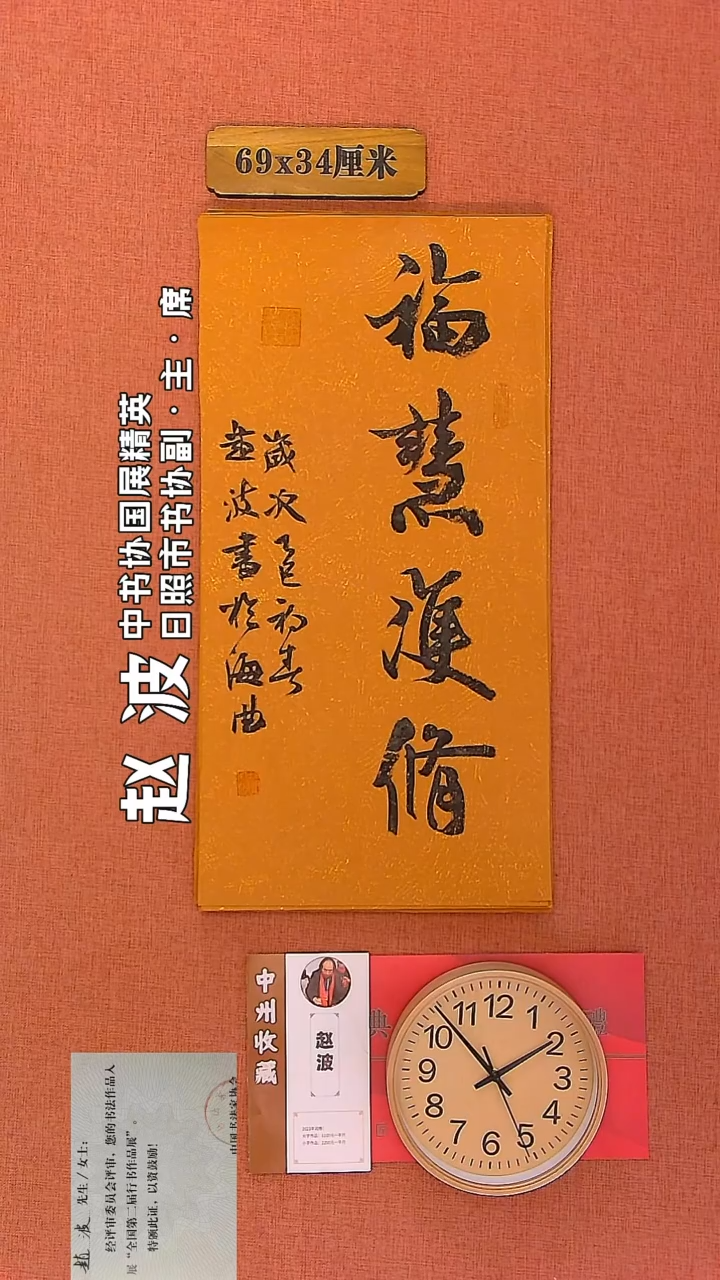 69x34厘米
福慧雙修
歲次乙巳初春
赵波書於海曲
赵波
中书协国展精英
日照市书协副·主·席
中堂收藏
赵波
12
1
2
3
4
5
6
7
8
9
10
11
赵波 先生/女士:
经评审委员会评审,您的书法作品入
展“全国第二届行书作品展”。
特颁此证,以资鼓励!
中国书法家协会